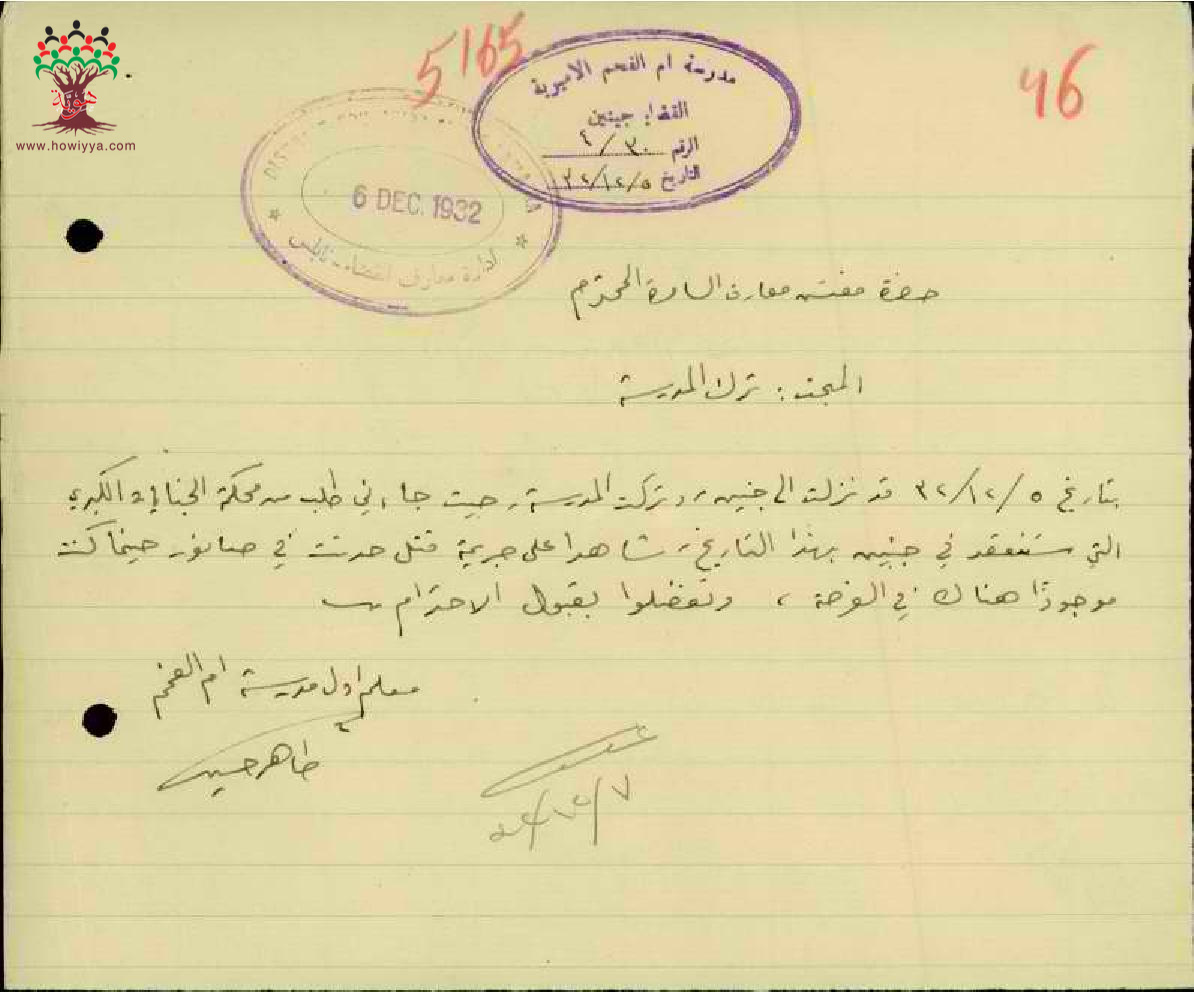 هوية
www.howiyya.com
5165
46
مدرسة ام الفحم الاميرية
القضاء جينين
الرقم ٤/٣٠
التاريخ ٣٢/١٢/٥
6 DEC. 1932
ادارة معارف القضاء - نابلس
حضرة مفتش معارف السامرة المحترم
المبحث: ترك المدرسة
بتاريخ ٥/١٢/٣٢ قد نزلت الى جنين، وتركت المدرسة، حيث جاءني طلب من محكمة الجنايات الكبرى
التي ستنعقد في جنين بهذا التاريخ، شاهدا على جريمة قتل حدثت في صانور حينما كنت
موجودًا هناك في الفرصة، وتفضلوا بقبول الاحترام
معلم اول مدرسة ام الفحم
طاهر حسين